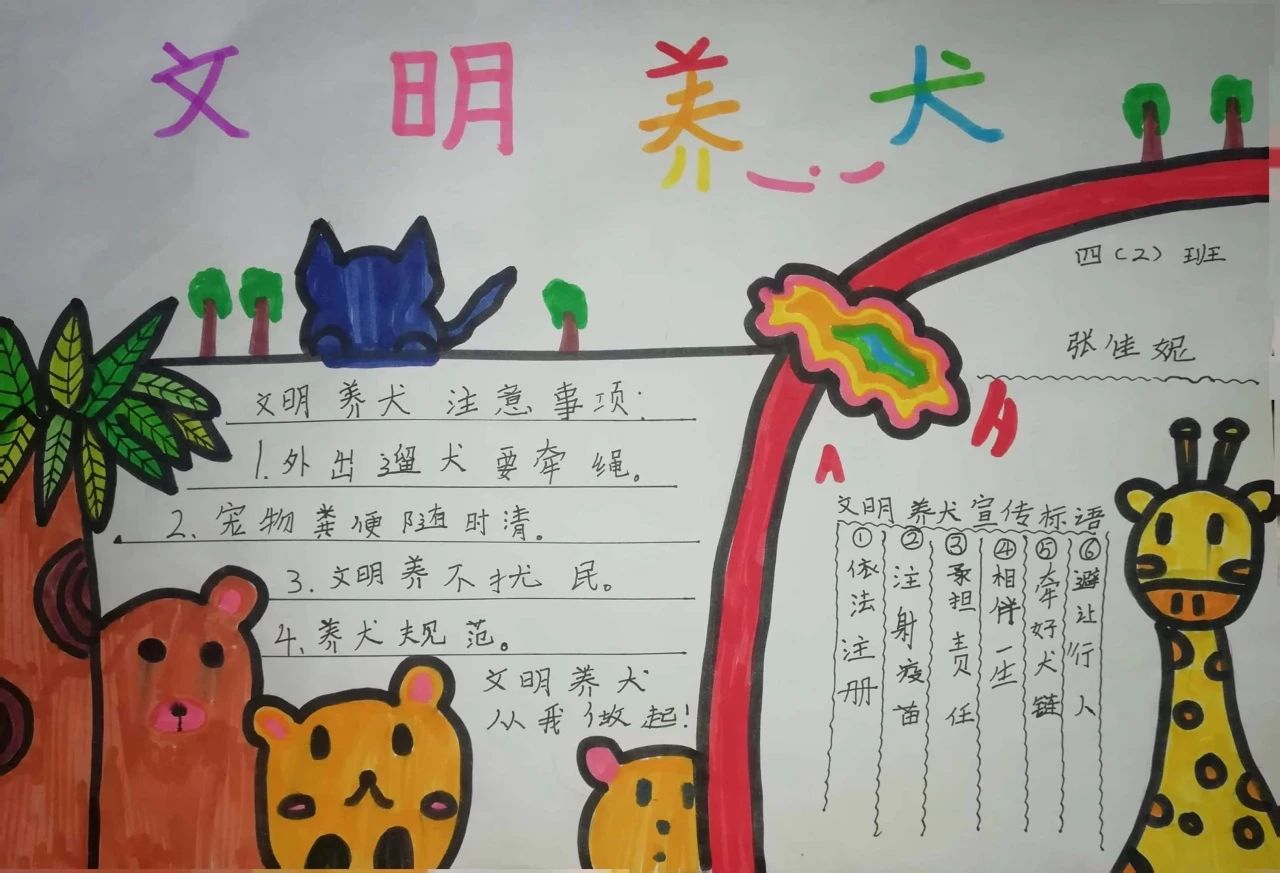 文明养犬
四（2）班
张佳妮
文明养犬注意事项：
1.外出遛犬要牵绳。
2.宠物粪便随时清。
3.文明养不扰民。
4.养犬规范。
文明养犬
从我做起！
文明养犬宣传标语
①依法注册
②注射疫苗
③承担责任
④相伴一生
⑤牵好犬链
⑥避让行人